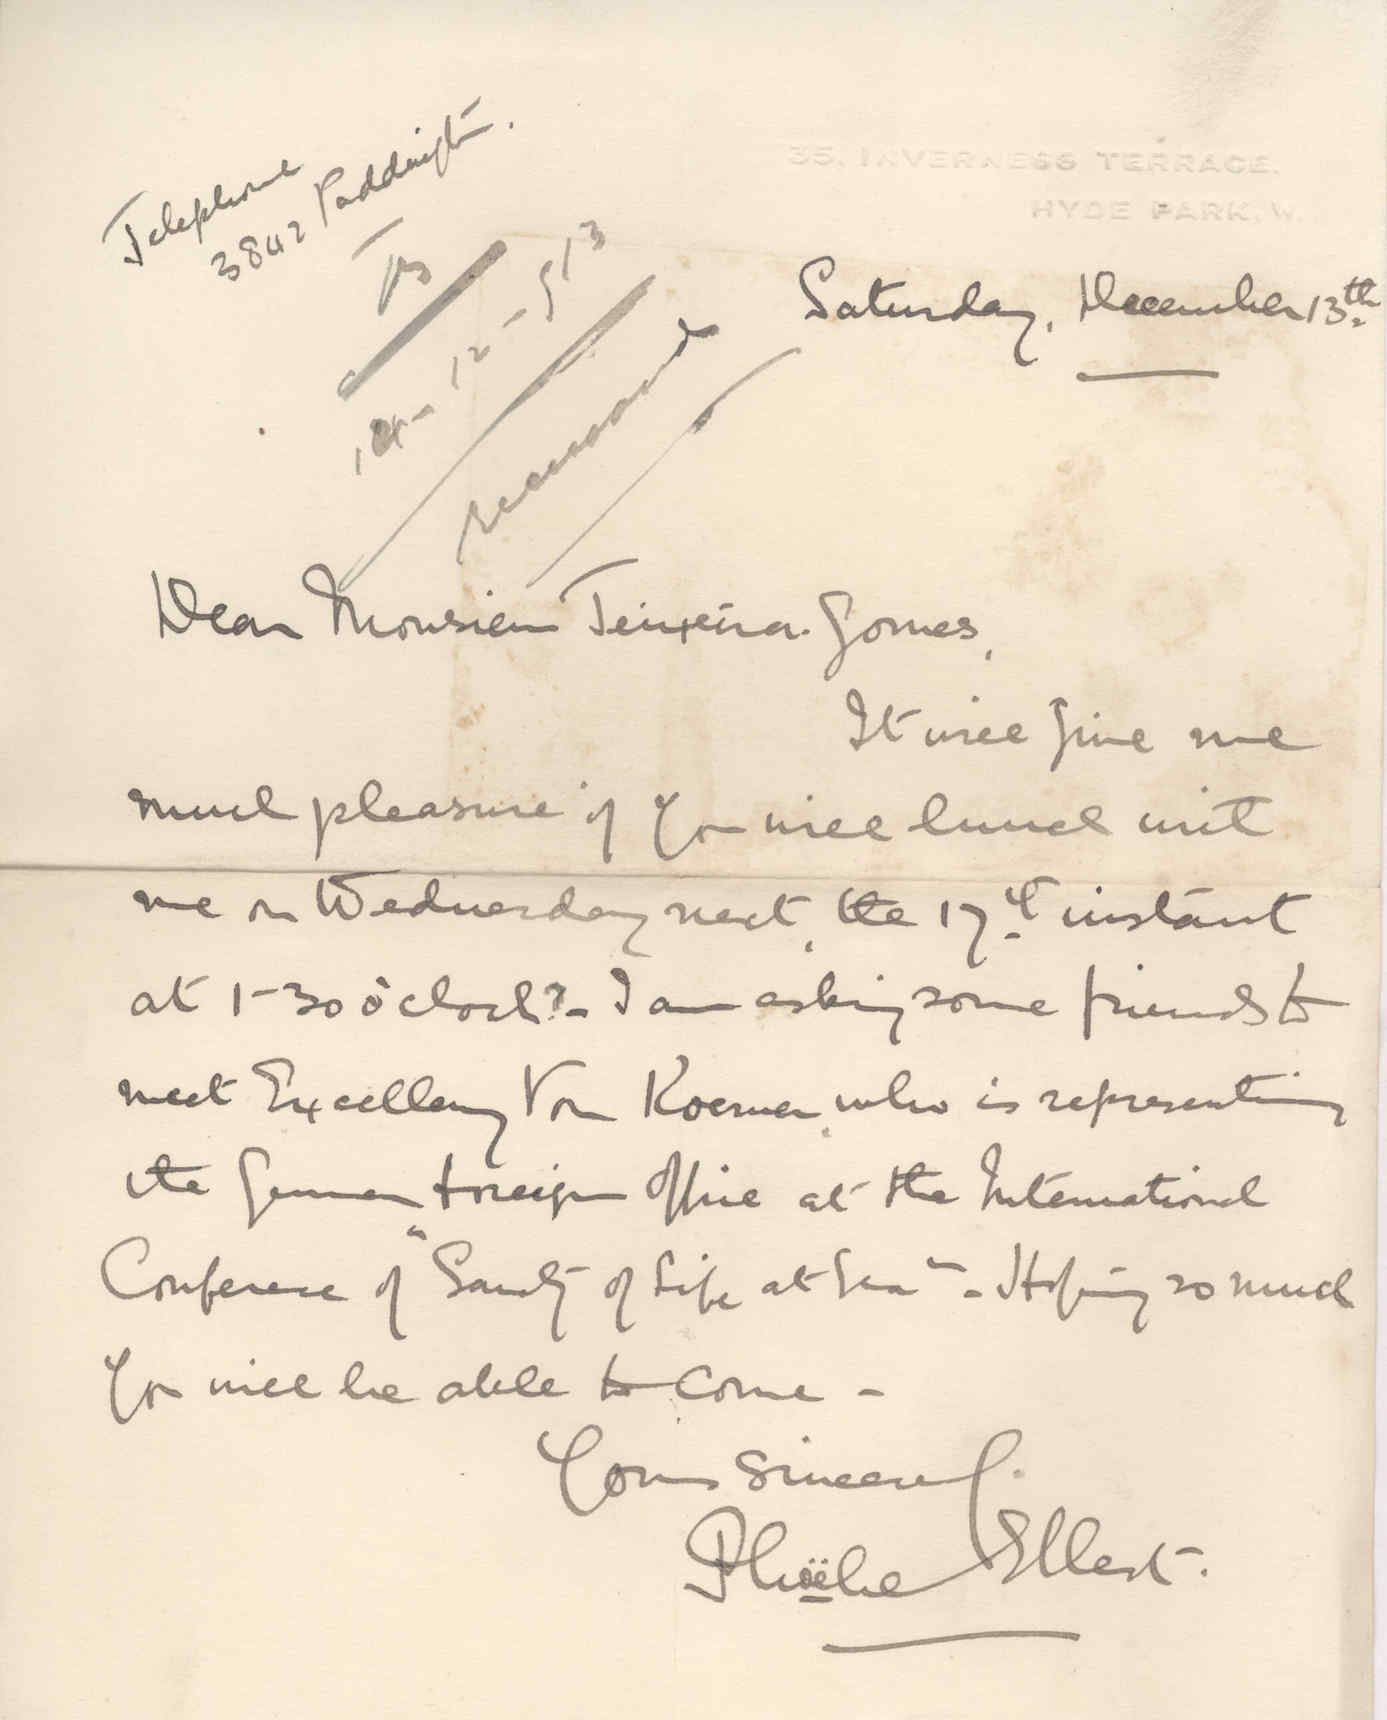 35, INVERNESS TERRACE,
HYDE PARK, W.
Telephone
3842 Paddington.
14-12-913
Saturday, December 13th.
Dear Monsieur Teixeira-Gomes,
It will give me
much pleasure if you will lunch with
me on Wednesday next, the 17th instant
at 1-30 o'clock? - I am asking some friends to
meet Excellency Von Koerner, who is representing
the German Foreign Office at the International
Conference of "Sanctity of Life at Sea" - Hoping so much
you will be able to come -
Yours sincerely.
Phoëbe Ellest.